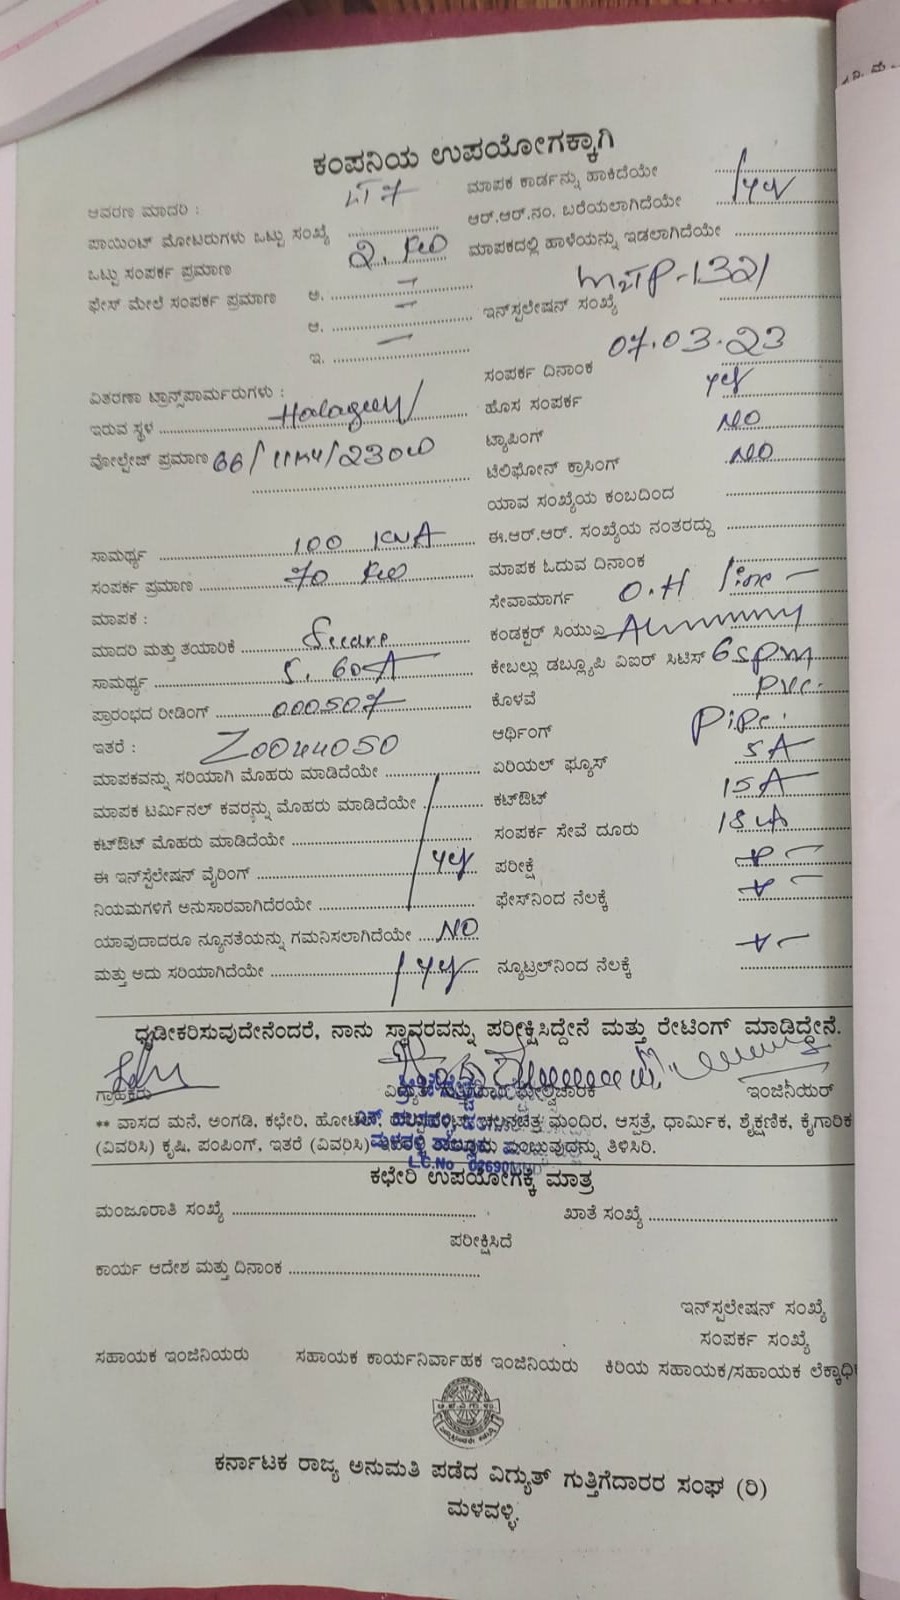 ಕಂಪನಿಯ ಉಪಯೋಗಕ್ಕಾಗಿ
ಆವರಣ ಮಾದರಿ : LT 7
ಪಾಯಿಂಟ್ ಮೋಟರುಗಳು ಒಟ್ಟು ಸಂಖ್ಯೆ
ಒಟ್ಟು ಸಂಪರ್ಕ ಪ್ರಮಾಣ 2.
ಫೇಸ್ ಮೇಲೆ ಸಂಪರ್ಕ ಪ್ರಮಾಣ ಅ. –
ಆ. –
ಇ. –
ವಿತರಣಾ ಟ್ರಾನ್ಸ್‌ಪಾರ್ಮರುಗಳು :
ಇರುವ ಸ್ಥಳ
ವೋಲ್ಟೇಜ್ ಪ್ರಮಾಣ 66/11KV/230
ಸಾಮರ್ಥ್ಯ 100 KVA
ಸಂಪರ್ಕ ಪ್ರಮಾಣ 70
ಮಾಪಕ :
ಮಾದರಿ ಮತ್ತು ತಯಾರಿಕೆ
ಸಾಮರ್ಥ್ಯ 5. 60A
ಪ್ರಾರಂಭದ ರೀಡಿಂಗ್ 000507
ಇತರೆ : Z0044050
ಮಾಪಕವನ್ನು ಸರಿಯಾಗಿ ಮೊಹರು ಮಾಡಿದೆಯೇ
ಮಾಪಕ ಟರ್ಮಿನಲ್ ಕವರನ್ನು ಮೊಹರು ಮಾಡಿದೆಯೇ
ಕಟ್‌ಔಟ್ ಮೊಹರು ಮಾಡಿದೆಯೇ
ಈ ಇನ್‌ಸ್ಟಲೇಷನ್ ವೈರಿಂಗ್ yes
ನಿಯಮಗಳಿಗೆ ಅನುಸಾರವಾಗಿದೆರಯೇ
ಯಾವುದಾದರೂ ನ್ಯೂನತೆಯನ್ನು ಗಮನಿಸಲಾಗಿದೆಯೇ NO
ಮತ್ತು ಅದು ಸರಿಯಾಗಿದೆಯೇ yes
ಮಾಪಕ ಕಾರ್ಡನ್ನು ಹಾಕಿದೆಯೇ
ಆರ್.ಆರ್.ನಂ. ಬರೆಯಲಾಗಿದೆಯೇ yes
ಮಾಪಕದಲ್ಲಿ ಹಾಳೆಯನ್ನು ಇಡಲಾಗಿದೆಯೇ
ಇನ್‌ಸ್ಪಲೇಷನ್ ಸಂಖ್ಯೆ M2TP-1321
ಸಂಪರ್ಕ ದಿನಾಂಕ 07.03.23
ಹೊಸ ಸಂಪರ್ಕ yes
ಟ್ಯಾಪಿಂಗ್ NO
ಟೆಲಿಫೋನ್ ಕ್ರಾಸಿಂಗ್ NO
ಯಾವ ಸಂಖ್ಯೆಯ ಕಂಬದಿಂದ
ಈ.ಆರ್.ಆರ್. ಸಂಖ್ಯೆಯ ನಂತರದ್ದು
ಮಾಪಕ ಓದುವ ದಿನಾಂಕ
ಸೇವಾಮಾರ್ಗ O.H line –
ಕಂಡಕ್ಟರ್ ಸಿಯುಎ
ಕೇಬಲ್ಲು ಡಬ್ಲ್ಯೂಪಿ ವಿಐಆರ್ ಸಿಟಿಸ್
ಕೊಳವೆ PVC.
ಆರ್ಥಿಂಗ್ Pipe.
ಏರಿಯಲ್ ಫ್ಯೂಸ್ 5A
ಕಟ್‌ಔಟ್ 15A
ಸಂಪರ್ಕ ಸೇವೆ ದೂರು
ಪರೀಕ್ಷೆ
ಫೇಸ್‌ನಿಂದ ನೆಲಕ್ಕೆ
ನ್ಯೂಟ್ರಲ್‌ನಿಂದ ನೆಲಕ್ಕೆ
ಧೃಡೀಕರಿಸುವುದೇನೆಂದರೆ, ನಾನು ಸ್ಥಾವರವನ್ನು ಪರೀಕ್ಷಿಸಿದ್ದೇನೆ ಮತ್ತು ರೇಟಿಂಗ್ ಮಾಡಿದ್ದೇನೆ.
ಗ್ರಾಹಕರು ಮೇಲ್ವಿಚಾರಕ ಇಂಜಿನಿಯರ್
** ವಾಸದ ಮನೆ, ಅಂಗಡಿ, ಕಛೇರಿ, ಮಂದಿರ, ಆಸ್ಪತ್ರೆ, ಧಾರ್ಮಿಕ, ಶೈಕ್ಷಣಿಕ, ಕೈಗಾರಿಕ
(ವಿವರಿಸಿ) ಕೃಷಿ, ಪಂಪಿಂಗ್, ಇತರೆ (ವಿವರಿಸಿ) ಎಂಬುವುದನ್ನು ತಿಳಿಸಿರಿ.
ಕಛೇರಿ ಉಪಯೋಗಕ್ಕೆ ಮಾತ್ರ
ಮಂಜೂರಾತಿ ಸಂಖ್ಯೆ ಖಾತೆ ಸಂಖ್ಯೆ
ಪರೀಕ್ಷಿಸಿದೆ
ಕಾರ್ಯ ಆದೇಶ ಮತ್ತು ದಿನಾಂಕ
ಇನ್‌ಸ್ಪಲೇಷನ್ ಸಂಖ್ಯೆ
ಸಂಪರ್ಕ ಸಂಖ್ಯೆ
ಸಹಾಯಕ ಇಂಜಿನಿಯರು ಸಹಾಯಕ ಕಾರ್ಯನಿರ್ವಾಹಕ ಇಂಜಿನಿಯರು ಕಿರಿಯ ಸಹಾಯಕ/ಸಹಾಯಕ
ಕರ್ನಾಟಕ ರಾಜ್ಯ ಅನುಮತಿ ಪಡೆದ ವಿದ್ಯುತ್ ಗುತ್ತಿಗೆದಾರರ ಸಂಘ (ರಿ)
ಮಳವಳ್ಳಿ.